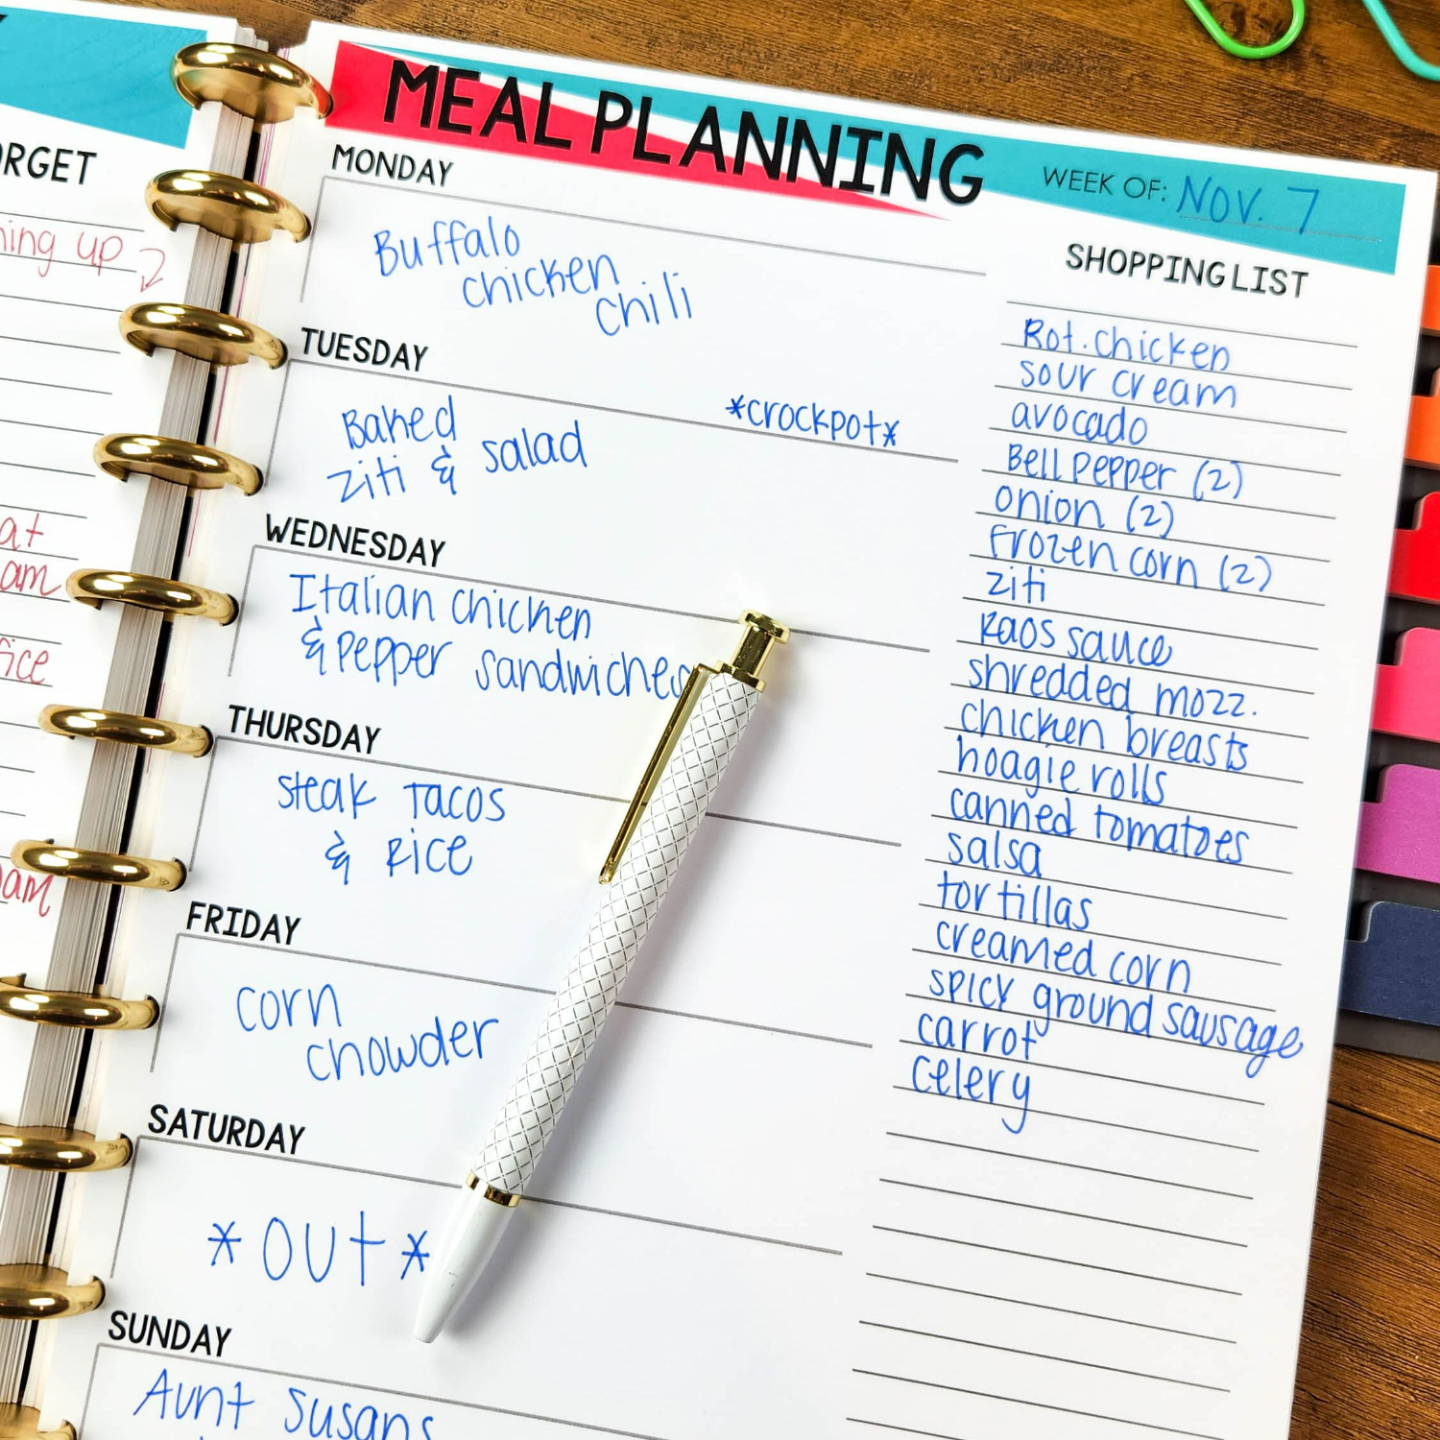 MEAL PLANNING
WEEK OF: Nov. 7
MONDAY
Buffalo
chicken
chili
TUESDAY
*crockpot*
Baked
ziti & salad
WEDNESDAY
Italian chicken
& pepper sandwiches
THURSDAY
steak tacos
& Rice
FRIDAY
corn
chowder
SATURDAY
*out*
SUNDAY
Aunt Susans
SHOPPING LIST
Rot. chicken
sour cream
avocado
Bell pepper (2)
onion (2)
frozen corn (2)
ziti
Raos sauce
shredded mozz.
chicken breasts
hoagie rolls
canned tomatoes
salsa
tortillas
creamed corn
spicy ground sausage
carrot
celery
up
at
am
am